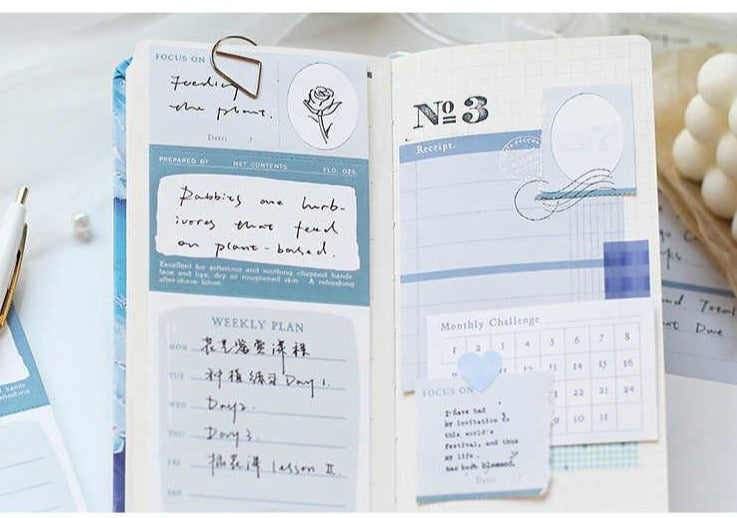 FOCUS ON
Feeding
the plant.
Date:
PREPARED BY NET CONTENTS FLD. OZS.
Rabbits are herb-
ivores that feed
on plant-based.
Excellent for softening and soothing chapped hands
face and lips, dry or roughened skin A refreshing
after-shave lotion.
WEEKLY PLAN
MON 花艺鉴赏课程
TUE 种植练习 Day 1.
WED Day2.
THU Day3.
FRI 插花课 lesson II
SAT
No 3
Receipt.
Monthly Challenge
1 2 3 4 5 6 7 8
15 16
23 24
31
FOCUS ON
I have had
my invitation to
this world's
festival, and thus
my life
has been blessed.
Date:
hands
refreshing
Total
Due